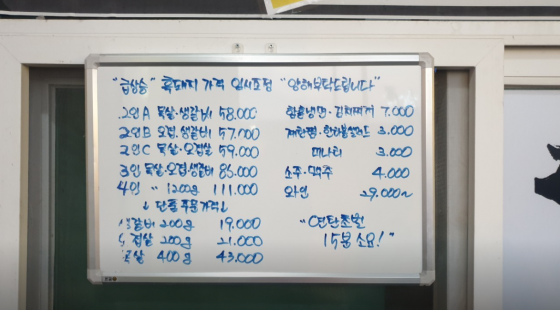 "급상승" 흑돼지 가격 일시조정 "양해부탁드립니다"
2인A 목살·생갈비 58.000
2인B 오겹.생갈비 57.000
2인C 목살·오겹살 59.000
3인 목살·오겹·생갈비 85.000
4인 〃 1200g 111.000
↓ 단품 주문가격 ↓
생갈비 200g 19.000
오겹살 200g 21.000
목살 400g 43.000
함흥냉면·김치찌개 7.000
계란찜·한라봉샐러드 3.000
미나리 3.000
소주·맥주 4.000
와인 29.000~
"연탄초벌
15분 소요!"